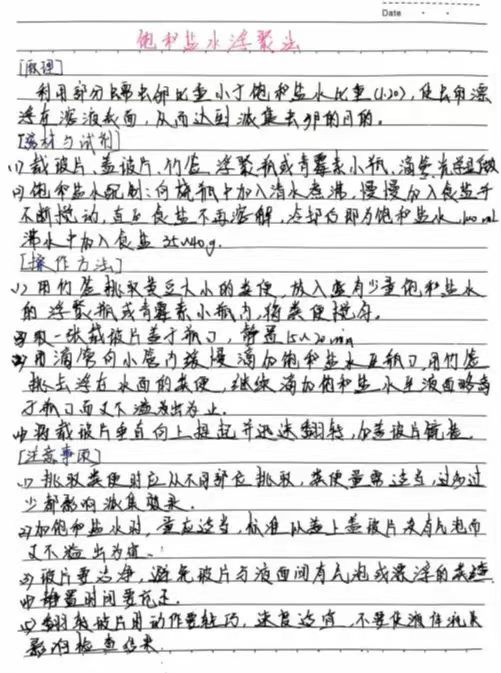 Date
饱和盐水浮聚法
[原理]
利用部分蠕虫虫卵比重小于饱和盐水比重(1.20),使虫卵漂
浮在溶液表面,从而达到减集虫卵的目的。
[器材与试剂]
(1)载玻片、盖玻片、竹签、浮聚瓶或青霉素小瓶、滴管、光学显微
(2)饱和盐水配制:向烧瓶中加入清水煮沸,慢慢加入食盐并
不断搅动,直至食盐不再溶解,冷却后即为饱和盐水,100mL
沸水中加入食盐35~40g.
[操作方法]
(1)用竹签挑取黄豆大小的粪便,放入盛有少量饱和盐水
的浮聚瓶或青霉素小瓶内,将粪便搅匀.
(2)取一张载玻片盖于瓶口,静置15~20min
(3)用滴管向小管内缓慢滴加饱和盐水至瓶口,用竹签
挑去浮在水面的粪便,继续滴加饱和盐水至液面略高
于瓶口而又不溢出为止.
(4)将载玻片垂直向上提起并迅速翻转,加盖玻片镜检.
[注意事项]
(1)挑取粪便时应从不同部位挑取,粪便量需适当,过多过
少都影响减集效果.
(2)加饱和盐水时,量应适当,标准以盖上盖玻片没有气泡而
又不溢出为宜.
(3)玻片要洁净,避免玻片与液面间有气泡或漂浮的粪渣.
(4)静置时间要充足.
(5)翻转玻片时动作要轻巧,速度适宜,不要使液体流失
影响检查结果.